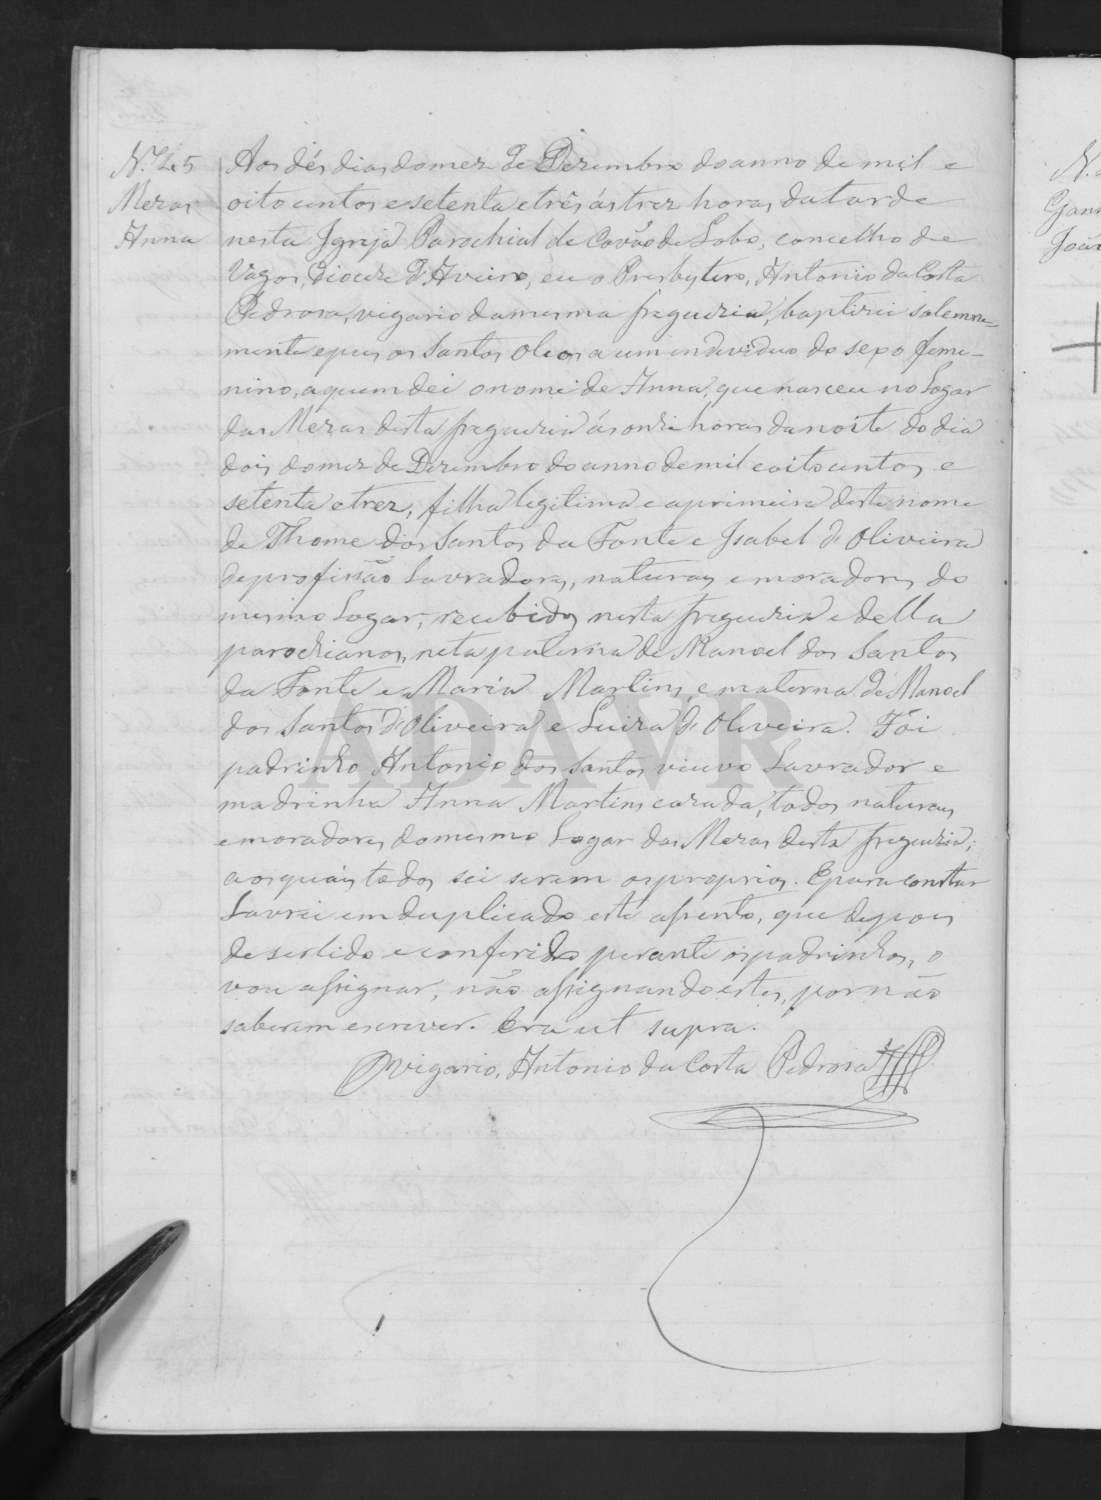 N.º 45
Mezas
Anna
Aos dés dias do mez de Dezembro do anno de mil e
oito centos e setenta e três ás trez horas da tarde
nesta Igreja Parochial de Covão do Lobo, concelho de
Vagos, Diocese d'Aveiro, eu o Presbytero, Antonio da Costa
Pedrosa, vigario da mesma freguezia, baptizei solemne=
mente e puz os Santos Oleos a um individuo do sexo femi-
nino, a quem dei o nome de Anna, que nasceu no Logar
das Mezas desta freguezia ás onze horas da noite do dia
dois do mez de Dezembro do anno de mil e oito centos e
setenta e trez, filha legitima e a primeira deste nome
de Thome dos Santos da Fonte e Isabel d'Oliveira
de profissão Lavradores, naturaes e moradores do
mesmo Logar, recebidos nesta freguezia e della
parochianos, neta paterna de Manoel dos Santos
da Fonte e Maria Martins e materna de Manoel
dos Santos d'Oliveira e Luiza d'Oliveira. Foi
padrinho Antonio dos Santos viuvo Lavrador e
madrinha Anna Martins cazada, todos naturaes
e moradores do mesmo Logar das Mezas desta freguezia;
aos quáis todos sei serem os proprios. E para constar
Lavrei em duplicado este assento, que depois
de ser lido e conferido perante os padrinhos, o
vou assignar, não assignando estes, por não
saberem escrever. Era ut supra.
O vigario, Antonio da Costa Pedrosa
ADAVR
N.
João